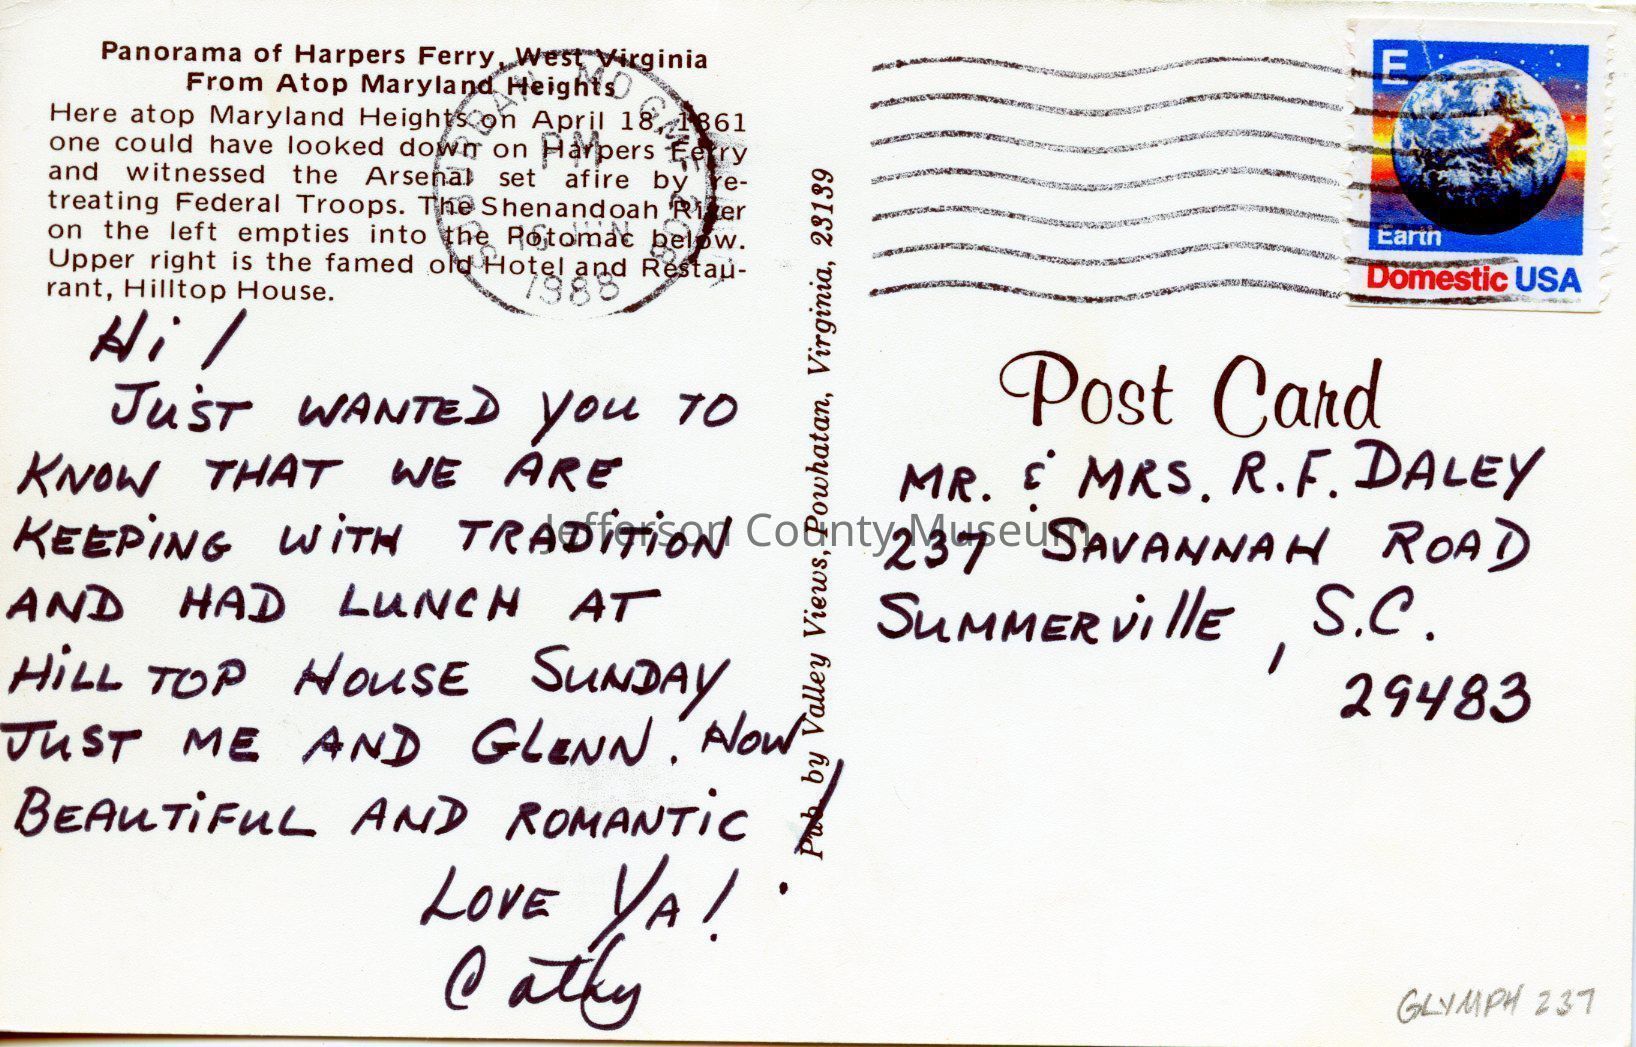 Panorama of Harpers Ferry, West Virginia
From Atop Maryland Heights
Here atop Maryland Heights on April 18, 1861
one could have looked down on Harpers Ferry
and witnessed the Arsenal set afire by re-
treating Federal Troops. The Shenandoah River
on the left empties into the Potomac below.
Upper right is the famed old Hotel and Restau-
rant, Hilltop House.
SUBURBAN MD GMF
PM
16 JUN
1988
Hi!
JUST WANTED YOU TO
KNOW THAT WE ARE
KEEPING WITH TRADITION
AND HAD LUNCH AT
HILL TOP HOUSE SUNDAY
JUST ME AND GLENN. HOW
BEAUTIFUL AND ROMANTIC!
LOVE YA!
Cathy
Pub. by Valley Views, Powhatan, Virginia, 23139
E
Earth
Domestic USA
Post Card
MR. & MRS. R.F. DALEY
237 SAVANNAH ROAD
SUMMERVILLE, S.C.
29483
Jefferson County Museum
GLYMPH 237